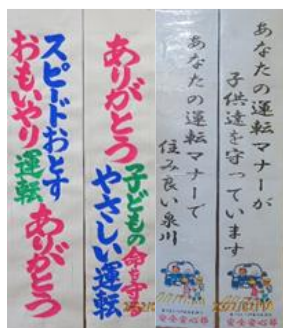 あなたの運転マナーが
子供達を守っています
安全安心部
あなたの運転マナーで
住み良い泉川
安全安心部
ありがとう
子どもの命を守る
やさしい運転
スピードおとす
おもいやり運転
ありがとう